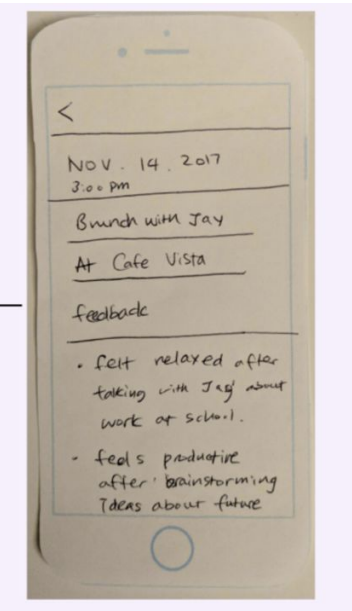 <
NOV. 14. 2017
3:00 pm
Brunch with Jay
At Cafe Vista
feedback
• felt relaxed after
talking with Jay about
work at school.
- feels productive
after brainstorming
Ideas about future